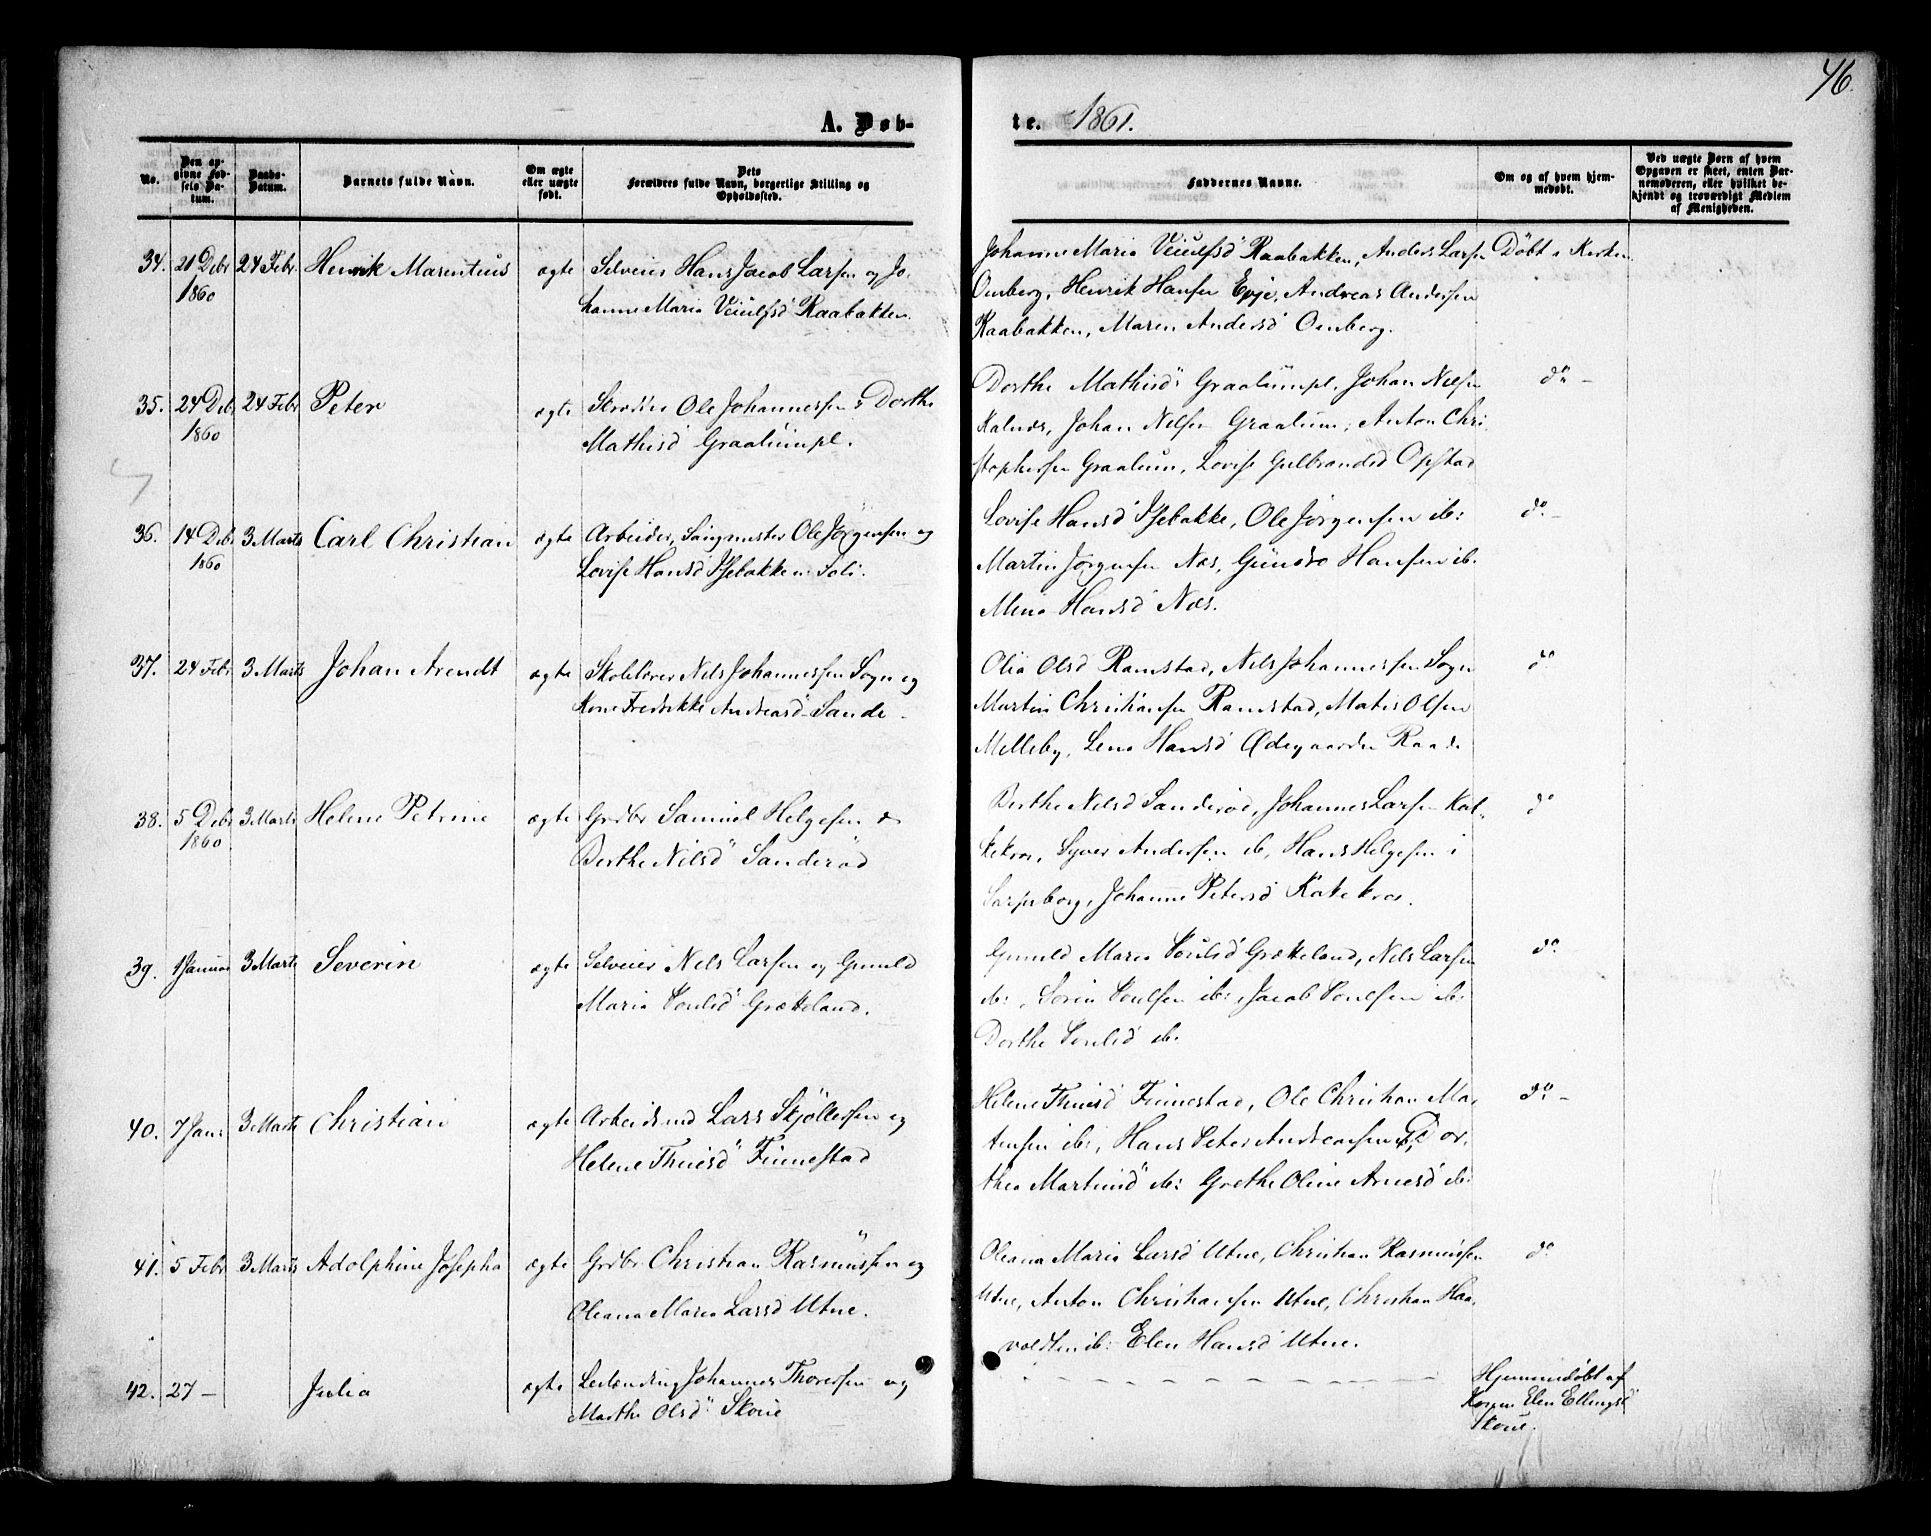 46.
A. Døb-
te. 1861.
No.
Den op-
givne Fød-
sels Da-
tum.
Daabs-
Datum.
Barnets fulde Navn.
Om ægte
eller uægte
født.
Dets
Forældres fulde Navn, borgerlige Stilling og
Opholdssted.
Faddernes Navne.
Om og af hvem hjem-
medøbt.
Ved uægte Børn af hvem
Opgaven er skeet, enten Bar-
nemoderen, eller hvilket be-
kjendt og troværdigt Medlem
af Menigheden.
34. 21 Debr 24 Febr. Henrik Marentius ægte Selveier Hans Jacob Larsen og Jo-
1860
hanne Maria Veiulfsd Raabakken.
Johanne Maria Veiulfsd Raabakken, Anders Larsen Døbt i Kirken
Omberg, Henrik Hansen Evje, Andreas Andersen
Raabakken, Maren Andersd Omberg.
35. 24 Deb 24 Febr Peter ægte Ole Johannessen & Dorthe
1860
Mathisd Graalumpl.
Dorthe Mathisd Graalumpl, Johan Nilsen do -
Kalnes, Johan Nilsen Graalum, Anton Chri
stophersen Graalum, Lovise Gulbrandsd Opstad
36. 14 Deb 3 Marts Carl Christian ægte Arbeider, Ole Jørgensen og
1860
Lovise Hansd Isebakke
Lovise Hansd Isebakke, Ole Jørgensen ib: do -
Martin Jørgensen Næs, Hansen ib.
Mina Hansd Næs.
37. 24 Febr 3 Marts Johan Arendt ægte Skolelærer Nils Johannessen Sogn og
Kone Fredrikke Andreasd Sande -
Olia Olsd Ramstad, Nils Johannessen Sogn do
Martin Christiansen Ramstad, Matis Olsen
Melleby, Lena Hansd Ødegaarden Raade
38. 5 Debr 3 Marts Helene Petrine ægte Grdbr Samuel Helgesen &
1860
Berthe Nilsd Sanderød
Berthe Nilsd Sanderød, Johannes Larsen Kat- do
Syver Andersen ib, Hans Helgesen i
Sarpsborg, Johanne Petersd
39. 1 Januar 3 Marts Severin ægte Selveier Nels Larsen og Gunild
Maria Poulsd Grækeland.
Gunild Maria Poulsd Grækeland, Nils Larsen do.
ib:, Søren Poulsen ib:, Jacob Poulsen ib:
Dorthe Poulsd ib.
40. 7 Jan: 3 Marts Christian ægte Arbeidsmd Lars Skjöllersen og
Helene Thuesd Finnestad
Helene Thuesd Finnestad, Ole Christian Mar do -
tinsen ib:, Hans Peter Andreassen ib, Dor,
thea Martinsd ib: Grethe Oline Arnesd ib:
41. 5 Febr 3 Marts Adolphine Josepha ægte Grdbr Christian Rasmussen og
Oleana Maria Larsd Utne.
Oleana Maria Larsd Utne, Christian Rasmussen do
Utne, Anton Christiansen Utne, Christian Haa,
voldsen ib: Elen Hansd Utne.
42. 27 - Julia ægte Leilænding Johannes Thoresen og
Marthe Olsd Skoue
Hjemmedøbt af
Elen Ellingsd
Skoue.